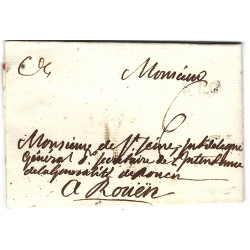 Monsieur
Monsieur de St. Seine, subdelegué
Général & sécretaire de l'intendance
de la Generalité de Rouen
A Rouën